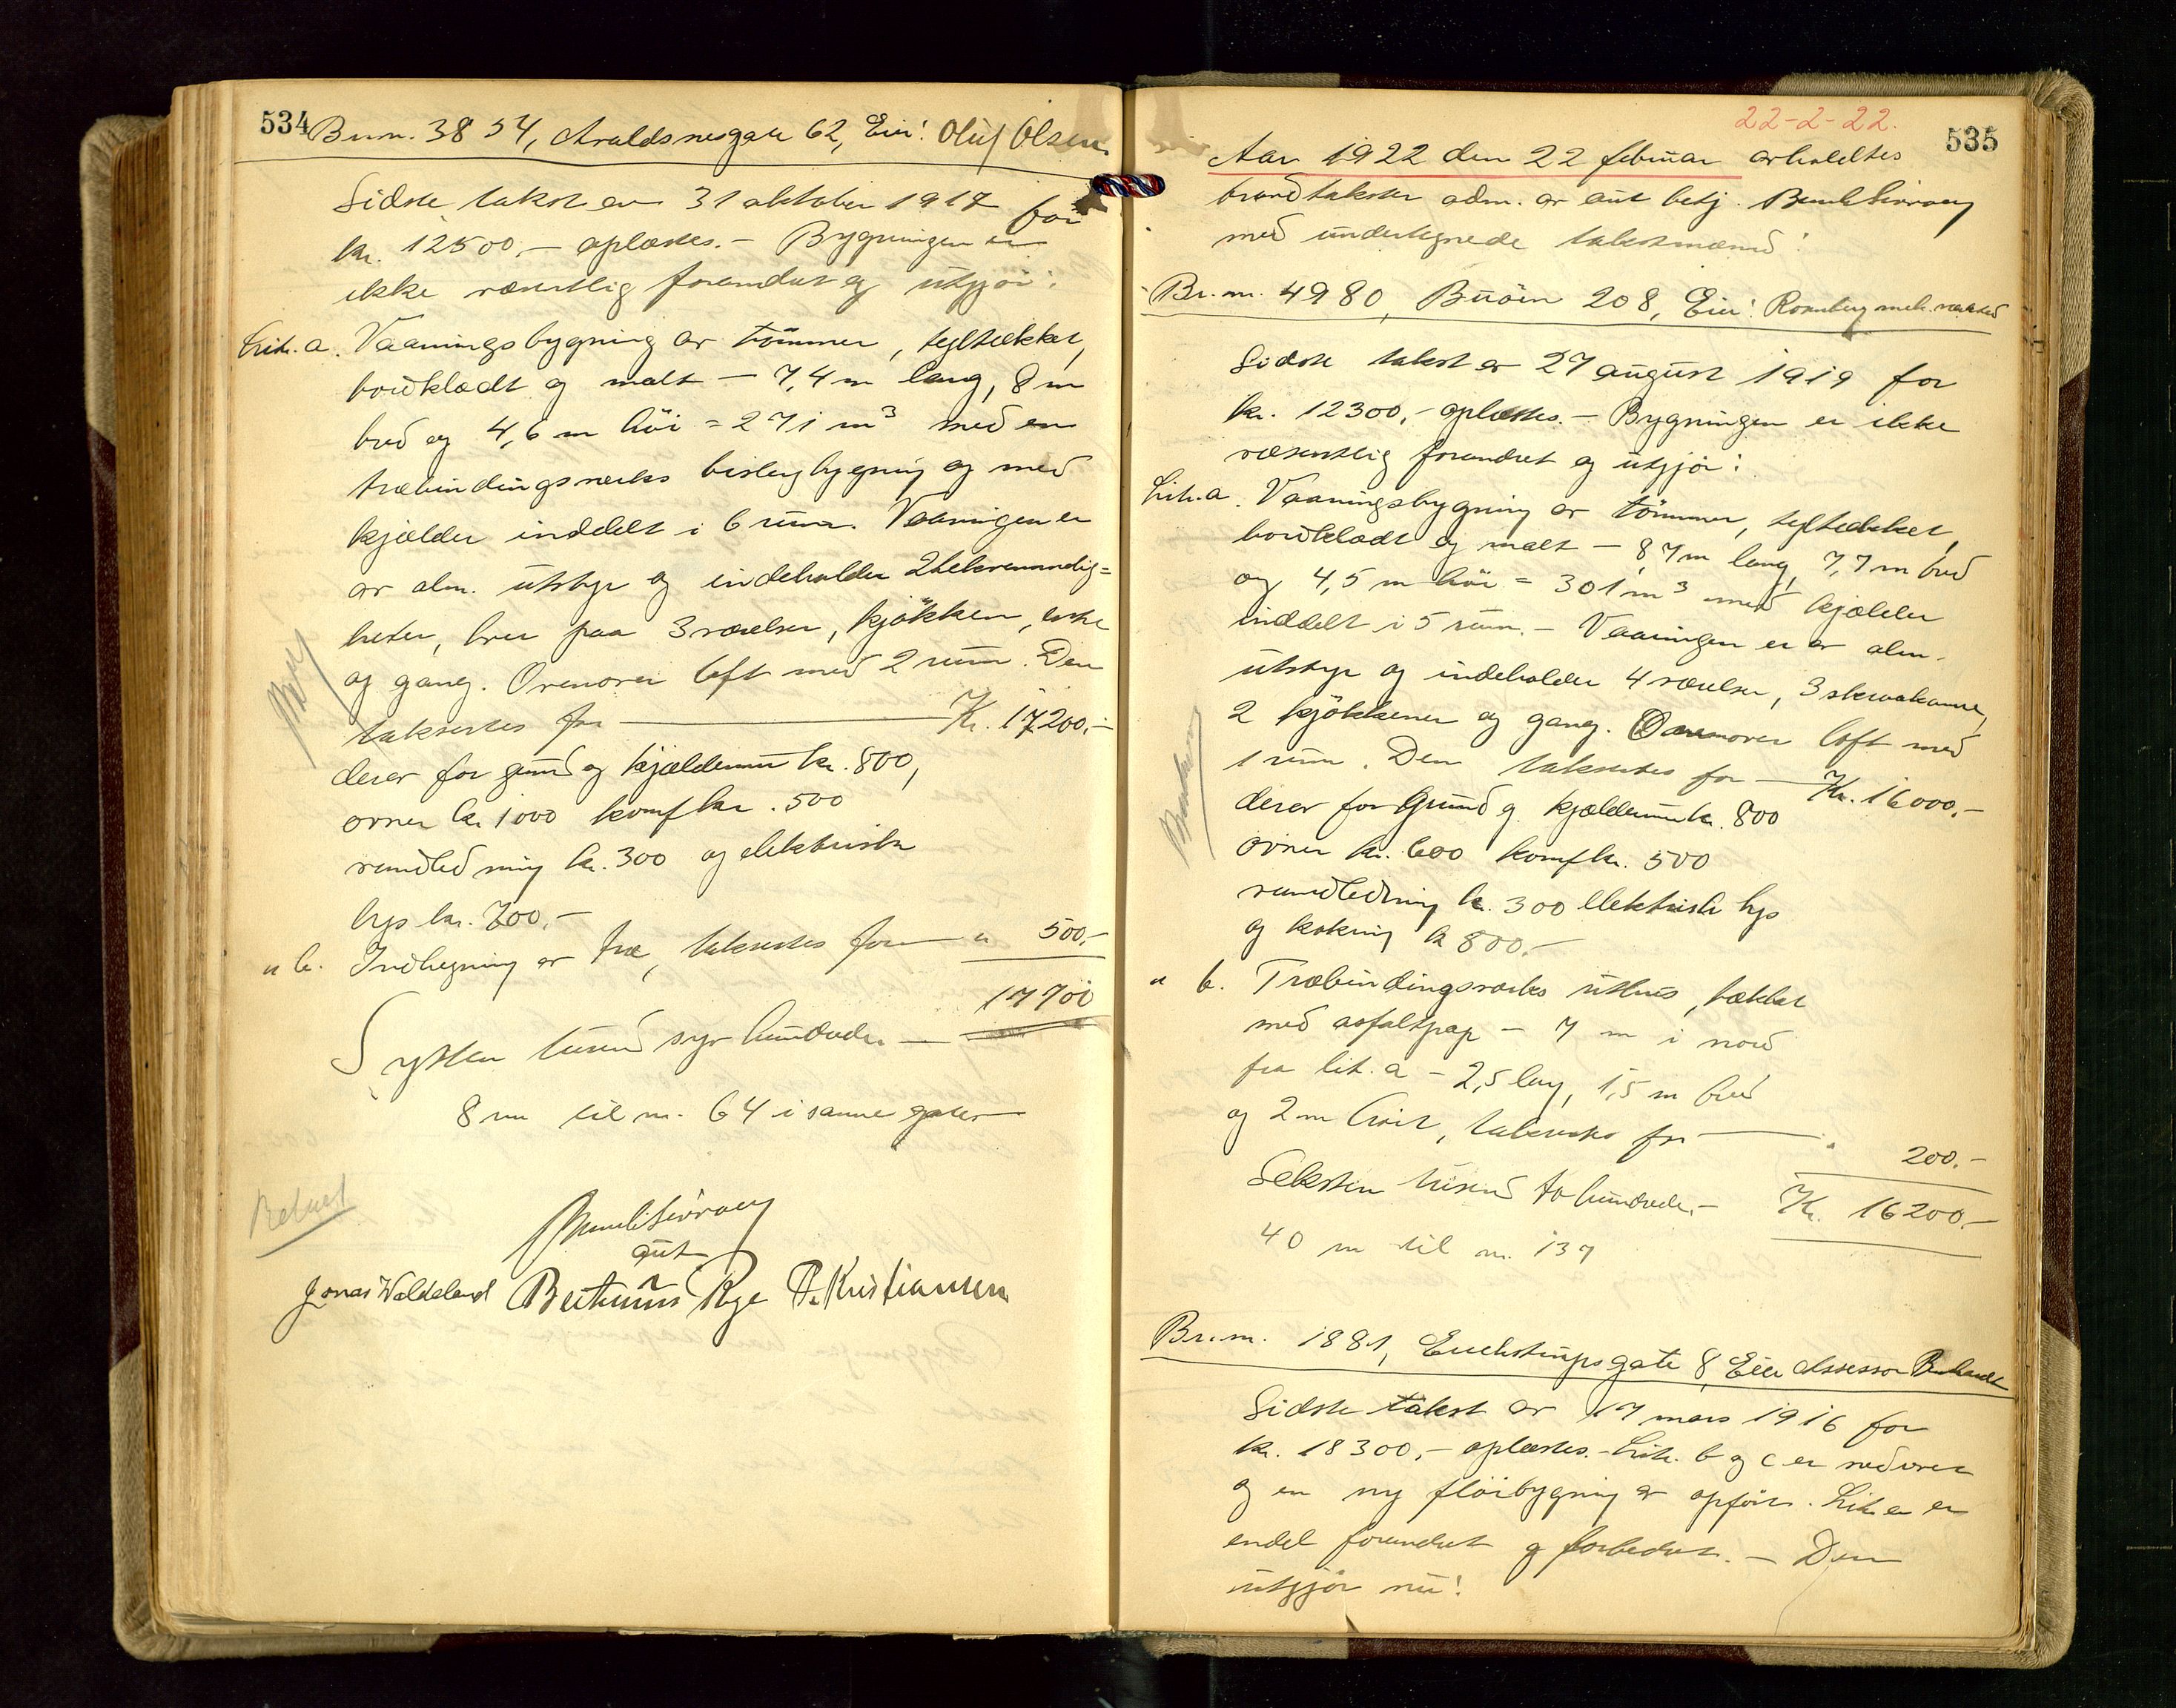 534
Br.nr. 3854, Avaldsnesgate 62, Eier: Oluf Olsen.
Sidste takst av 31 oktober 1917 for
kr. 12500,- oplæstes. - Bygningen er
ikke væsentlig forandret og utgjör:
Litr. a. Vaaningsbygning av tömmer, tegltækket,
bordklædt og malt - 7,4 m lang, 8 m
bred og 4,6 m höi = 271 m³ med en
træbindingsverks bislagbygning og med
kjælder inddelt i 6 rum. Vaaningen er
av alm. utstyr og indeholder 2 bekvemmelig=
heter, hver paa 3 værelser, kjökken, entre
og gang. Ovenover loft med 2 rum. Den
taksertes for Kr. 17200,-
derav for grund og kjælderrum kr. 800,
ovner kr 1000 komf kr. 500
vandledning kr. 300 og elektrisk
lys kr. 700,-
" b. Indhegning av træ, taksertes for " 500,-
17700
Sytten tusind syv hundrede. -
8 m til nr. 64 i samme gate
Betalt
aut
Jonas Waldeland Bertinius Rege P. Kristiansen
22-2-22.
535
Aar 1922 den 22 februar avholdtes
brandtakster adm. av aut betj.
med undertegnede takstmænd:
Br.nr. 4980, Buöen 208, Eier: Rosenberg mek. verksted
Sidste takst av 27 august 1919 for
kr. 12300,- oplæstes. - Bygningen er ikke
væsentlig forandret og utgjör:
Litr. a. Vaaningsbygning av tömmer, tegltækket,
bordklædt og malt - 8,7 m lang, 7,7 m bred
og 4,5 m höi = 301 m³ med kjælder
inddelt i 5 rum. - Vaaningen er av alm.
utstyr og indeholder 4 værelser, 3
2 kjökkener og gang. Ovenover loft med
1 rum. Den taksertes for Kr. 16000,-
derav for grund og kjælderrum kr. 800
ovner kr. 600 komf kr. 500
vandledning kr. 300 elektrisk lys
og kokning kr 800,-
" b. Træbindingsverks uthus, tækket
med asfaltpap - 7 m i nord
fra lit. a - 2,5 lang, 1,5 m bred
og 2 m höit, taksertes for " 200,-
Seksten tusind to hundrede. - Kr. 16200,-
40 m til nr. 137
Br.nr. 1881, Erichstrupsgate 8, Eier Assessor
Sidste takst av 17 mars 1916 for
kr. 18300,- oplæstes. - Litr. b og c er nedrevet
og en ny flöibygning er opfört. Litr a er
endel forandret og forbedret. - Den
utgjör nu: